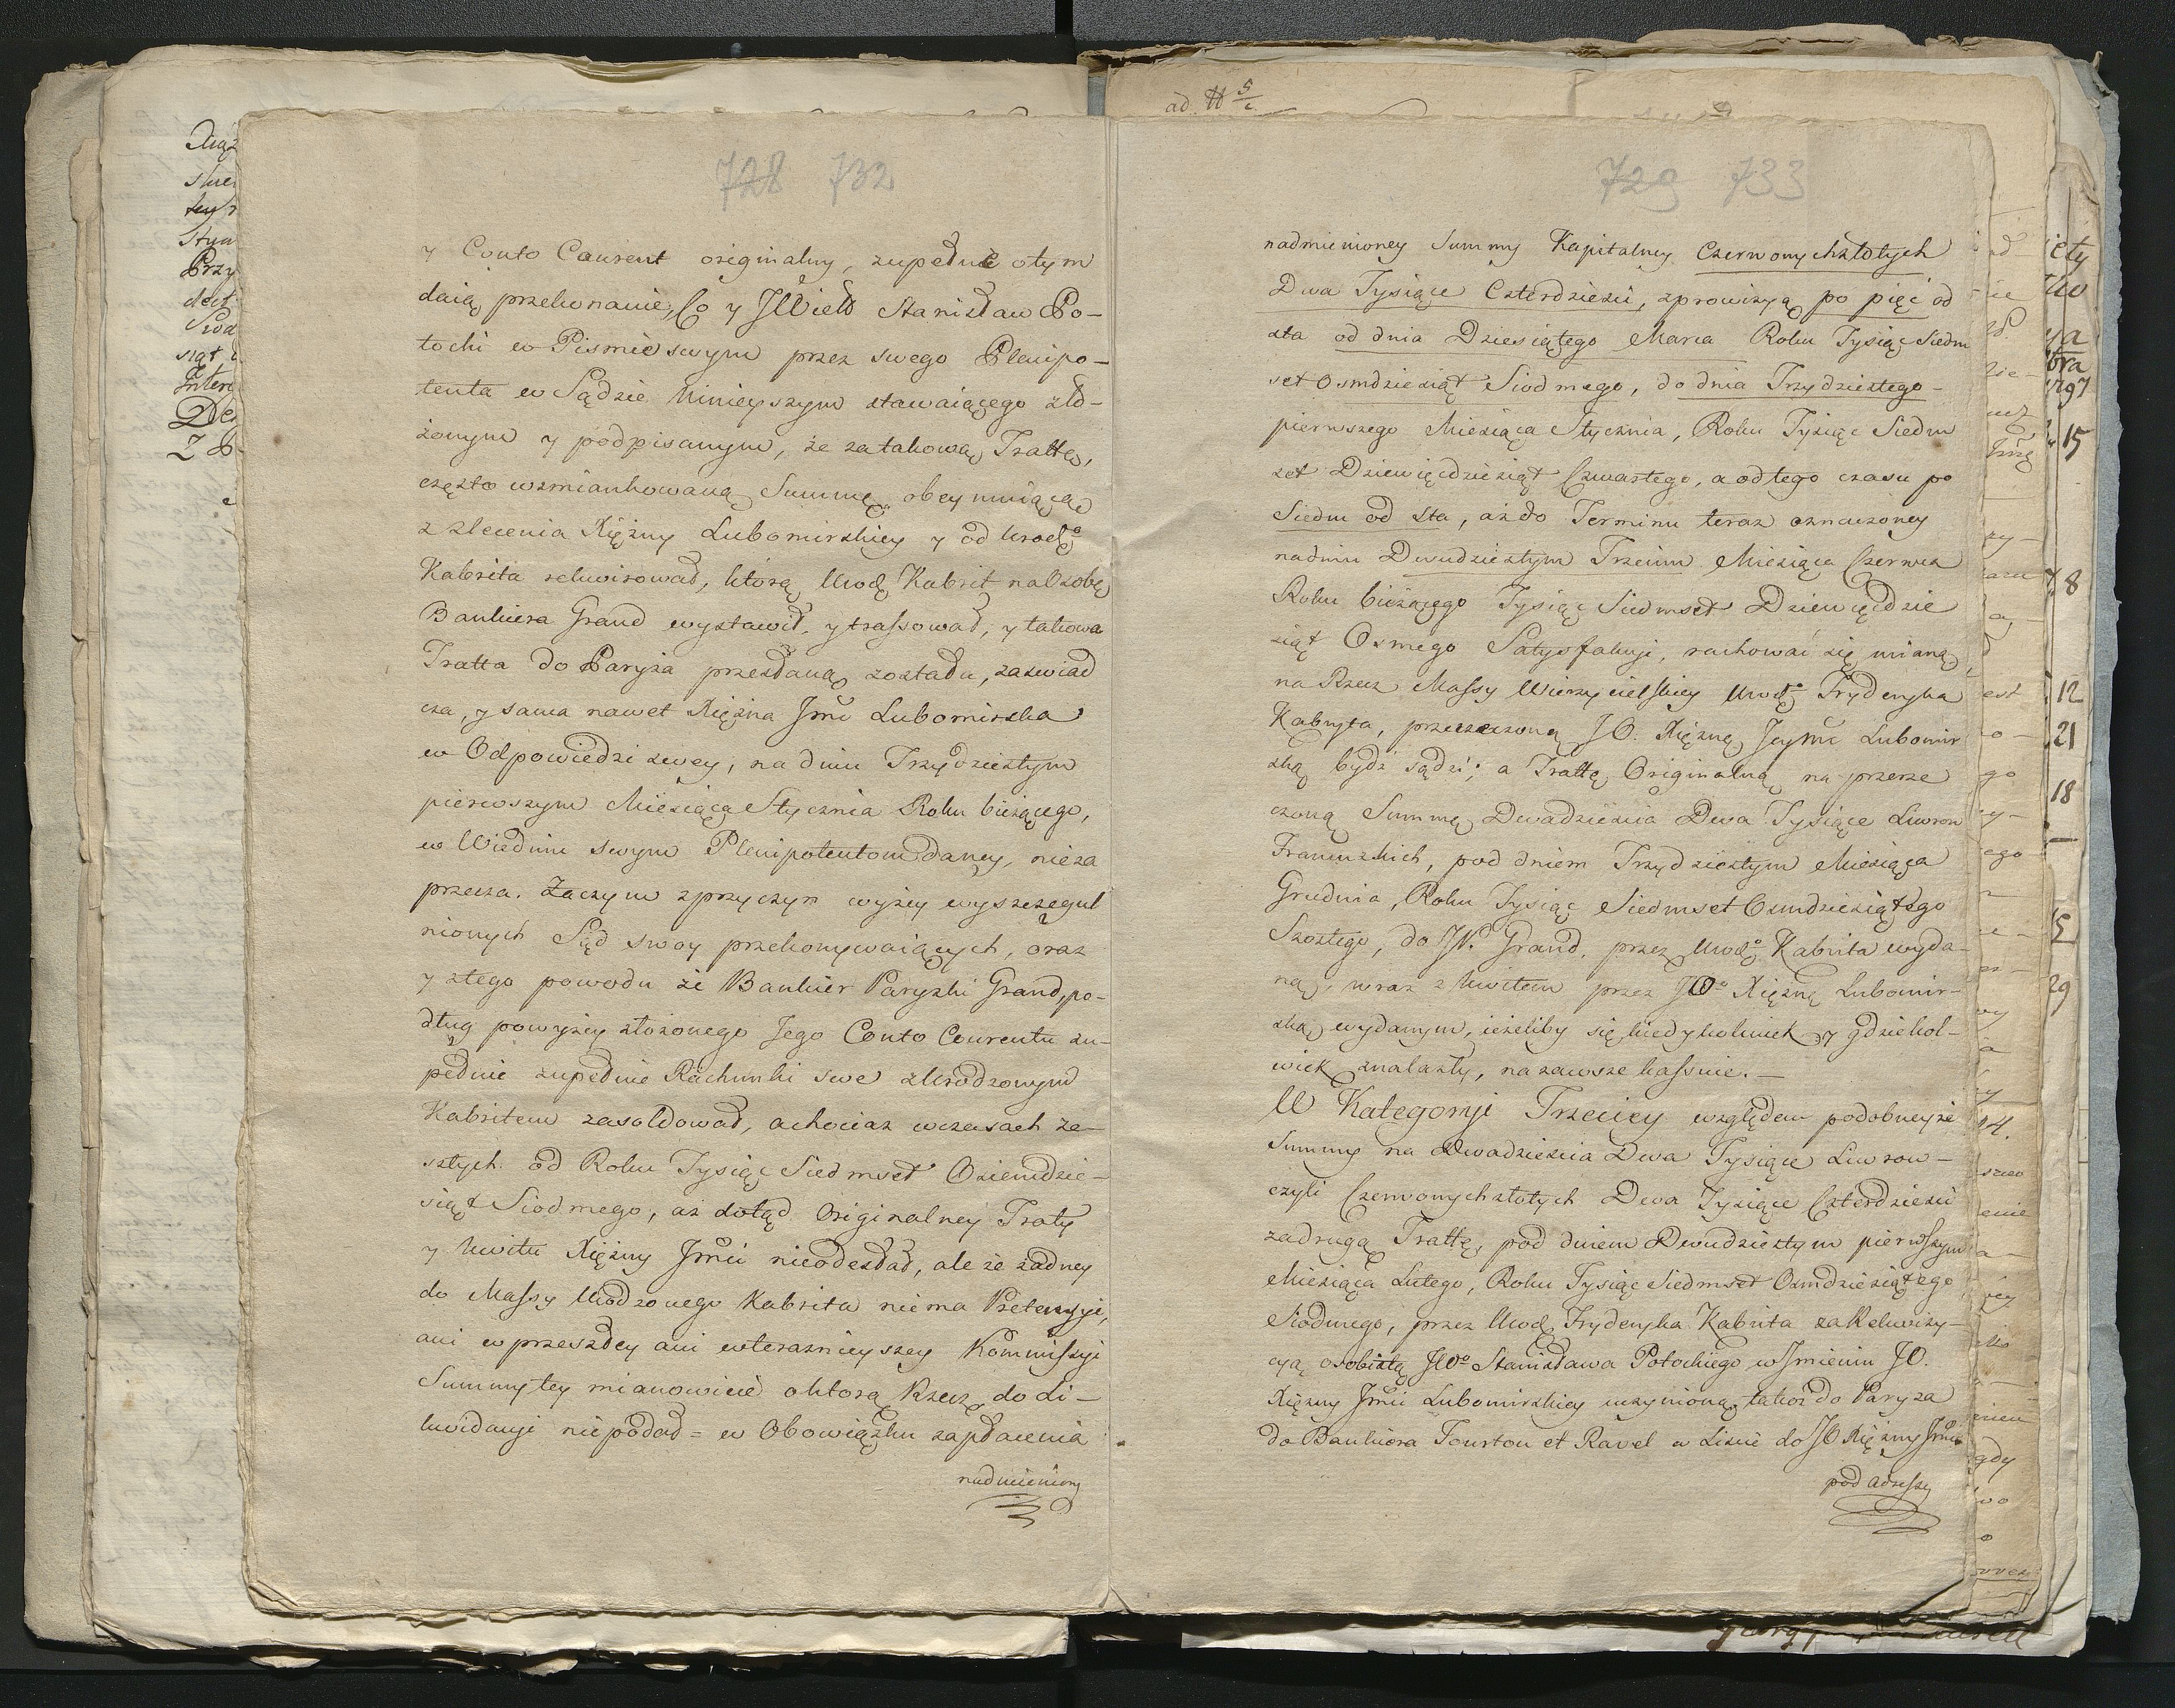 728 732
y Conto Courent originalny, zupełne otym
daią przekonanie, Co y JWielo Stanisław Po-
tocki w Pismie swym przez swego Plenipo-
tenta w Sądzie Ninieyszym stawaiącego zło-
żonym y podpisanym, że za takową Trattę,
często wzmiankowaną Summę obeymuiącą
z zlecenia Xiężny Lubomirskiey y od Urodo
Kabrita rekwirował, którą Urodo Kabrit na Osobę
Bankiera Grand wystawił, y trassował, y takowa
Tratta do Paryża przesłaną została, zaswiad
cza, y sama nawet Xiężna Jmć Lubomirska
w Odpowiedzi swey, na dniu Trzydziestym
pierwszym Miesiąca Stycznia Roku bieżącego,
w Wiedniu swym Plenipotentom daney, nieza
przecza. Zaczym zprzyczyn wyżey wyszczegul
nionych Sąd swoy przekonywaiących, oraz
y ztego powodu że Bankier Paryzki Grand, po-
dług powyżey złożonego Jego Conto Courentu zu-
pełnie zupełnie Rachunki swe z Urodzonym
Kabritem zasoldował, a chociaz wczasach ze-
szłych od Roku Tysiąc Siedmset Osiemdzie-
siąt Siodmego, az dotąd Originalney Traty
y kwitu Xiężny Jmći nieodesłał, ale że żadney
do Massy Urodzonego Kabrita niema Pretensyi,
ani w przeszłey ani wteraznieyszey Kommissyi
Summy tey mianowicie oktorą Rzecz do Li-
kwidacyi niepodał = w Obowiązku zapłacenia
nadmieniony
ad N 5/c
729 733
nadmienioney Summy Kapitalney Czerwonych złotych
Dwa Tysiące Czterdzieści, zprowizyą po pięć od
sta od dnia Dziesiątego Marca Roku Tysiąc Siedm
set Osmdziesiąt Siodmego, do dnia Trzydziestego-
pierwszego Miesiąca Stycznia, Roku Tysiąc Siedm
set Dziewięćdziesiąt Czwartego, a od tego czasu po
Siedm od sta, aż do Terminu teraz oznaczoney
nadniu Dwudziestym Trzecim Miesiąca Czerwca
Roku bieżącego Tysiąc Siedmset Dziewięćdzie
siąt Osmego Satysfakcyi, rachować się mianą
na Rzecz Massy Wierzycielskiey Urodo Frydryka
Kabryta, przerzeczoną JO. Xiężnę Jeymć Lubomir
ską bydź sądzi; a Trattę Originalną na przerze
czoną Summę Dwadzieścia Dwa Tysiące Liwrow
Francuzkich, pod dniem Trzydziestym Miesiąca
Grudnia, Roku Tysiąc Siedmset Osmdziesiątego
Szostego, do JP. Grand, przez Urodo Kabrita wyda-
ną, wraz z kwitem przez JO. Xiężnę Lubomir-
ską wydanym, ieżeliby się kiedykolwiek y gdziekol-
wiek znalazły, na zawsze kassuie. -
W Kategoryi Trzeciey względem podobneyże
Summy na Dwadzieścia Dwa Tysiące Liwrow -
czyli Czerwonych złotych Dwa Tysiące Czterdzieści
zadrugą Trattę, pod dniem Dwudziestym pierwszym
Miesiąca Lutego, Roku Tysiąc Siedmset Osmdziesiątego
Siodmego, przez Urodo Frydryka Kabrita za Rekwizy-
cyą osobistą JWo Stanisława Potockiego w Jmieniu JO.
Xiężny Jmći Lubomirskiey uczynioną, także do Paryza
do Bankiera Tourton et Ravel w Liscie do JO Xiężny Jmći
pod adressy